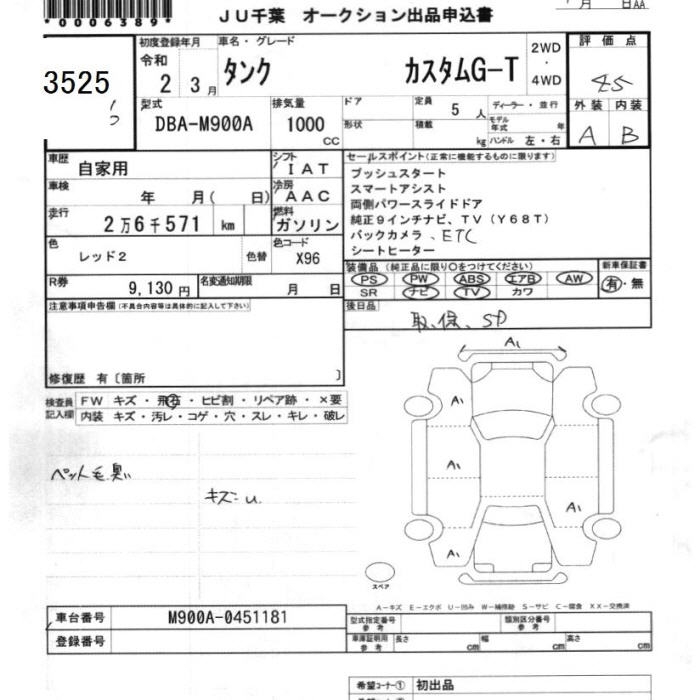 *0006389*
JU千葉 オークション出品申込書
月 日AA
3525
初度登録年月 車名・グレード
令和 2 3月 タンク カスタムG-T
2WD ・ 4WD
評価点
4.5
型式 DBA-M900A
排気量 1000 CC
ドア 形状
定員 5 人
積載 kg
ディーラー・並行
モデル年式 年
ハンドル 左・右
外装 内装
A B
車歴 自家用
シフト IAT
車検 年 月( 日)
冷房 AAC
走行 2万6千571 km
燃料 ガソリン
色 レッド2 色替
色コード X96
R券 9,130円
名変通知期限 月 日
セールスポイント(正常に機能するものに限ります)
プッシュスタート
スマートアシスト
両側パワースライドドア
純正9インチナビ、TV(Y68T)
バックカメラ、ETC
シートヒーター
装備品(純正品に限り○をつけてください)
新車保証書
PS PW ABS エアB AW
SR ナビ TV カワ
有・無
後日品
取、保、SD
注意事項申告欄(不具合内容等は具体的に記入して下さい)
修復歴 有〔箇所 〕
検査員記入欄
FW キズ・飛石・ヒビ割・リペア跡・×要
内装 キズ・汚レ・コゲ・穴・スレ・キレ・破レ
ペット毛臭い
キズ=u.
A1
A1
A1
A1
A1
スペア
A-キズ E-エクボ U-凹み W-補修跡 S-サビ C-腐食 XX-交換済
車台番号 M900A-0451181
登録番号
型式指定番号 参考
類別区分番号 参考
車庫証明用 参考
長さ cm 幅 cm 高さ cm
希望コーナー① 初出品
希望コーナー②